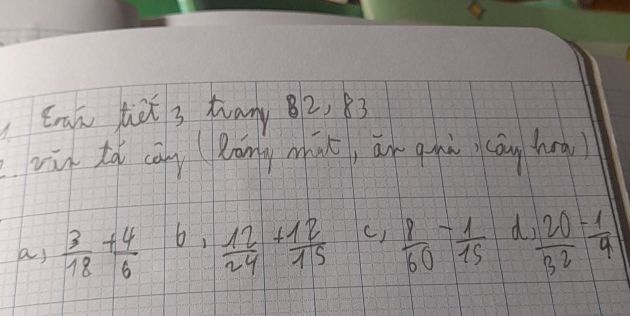 1 Toán tiết 3 trang 82, 83
2. văn tả cây (bóng mát, ăn quả, cây hoa)
a, 3/18 + 4/6 b, 12/24 + 12/15 c, 8/60 - 1/15 d, 20/32 - 1/4